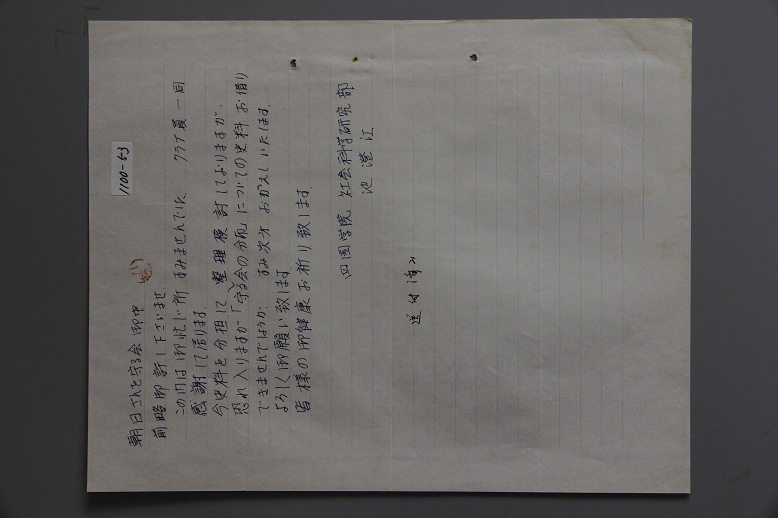 1100-53
朝日さんを守る会 御中
前略御許し下さいませ.
この間は御忙しい所 すみませんでした クラブ員一同
感謝して居ります.
今史料を分担して 整理検討しておりますが.
恐れ入りますが「守る会の分(配)」についての史料 お借り
できませんでしょうか. すみ次第 おかえしいたします.
よろしく御願い致します
皆様の御健康お祈り致します.
四国学院 社会科学研究部
池 澄江
送付(済)